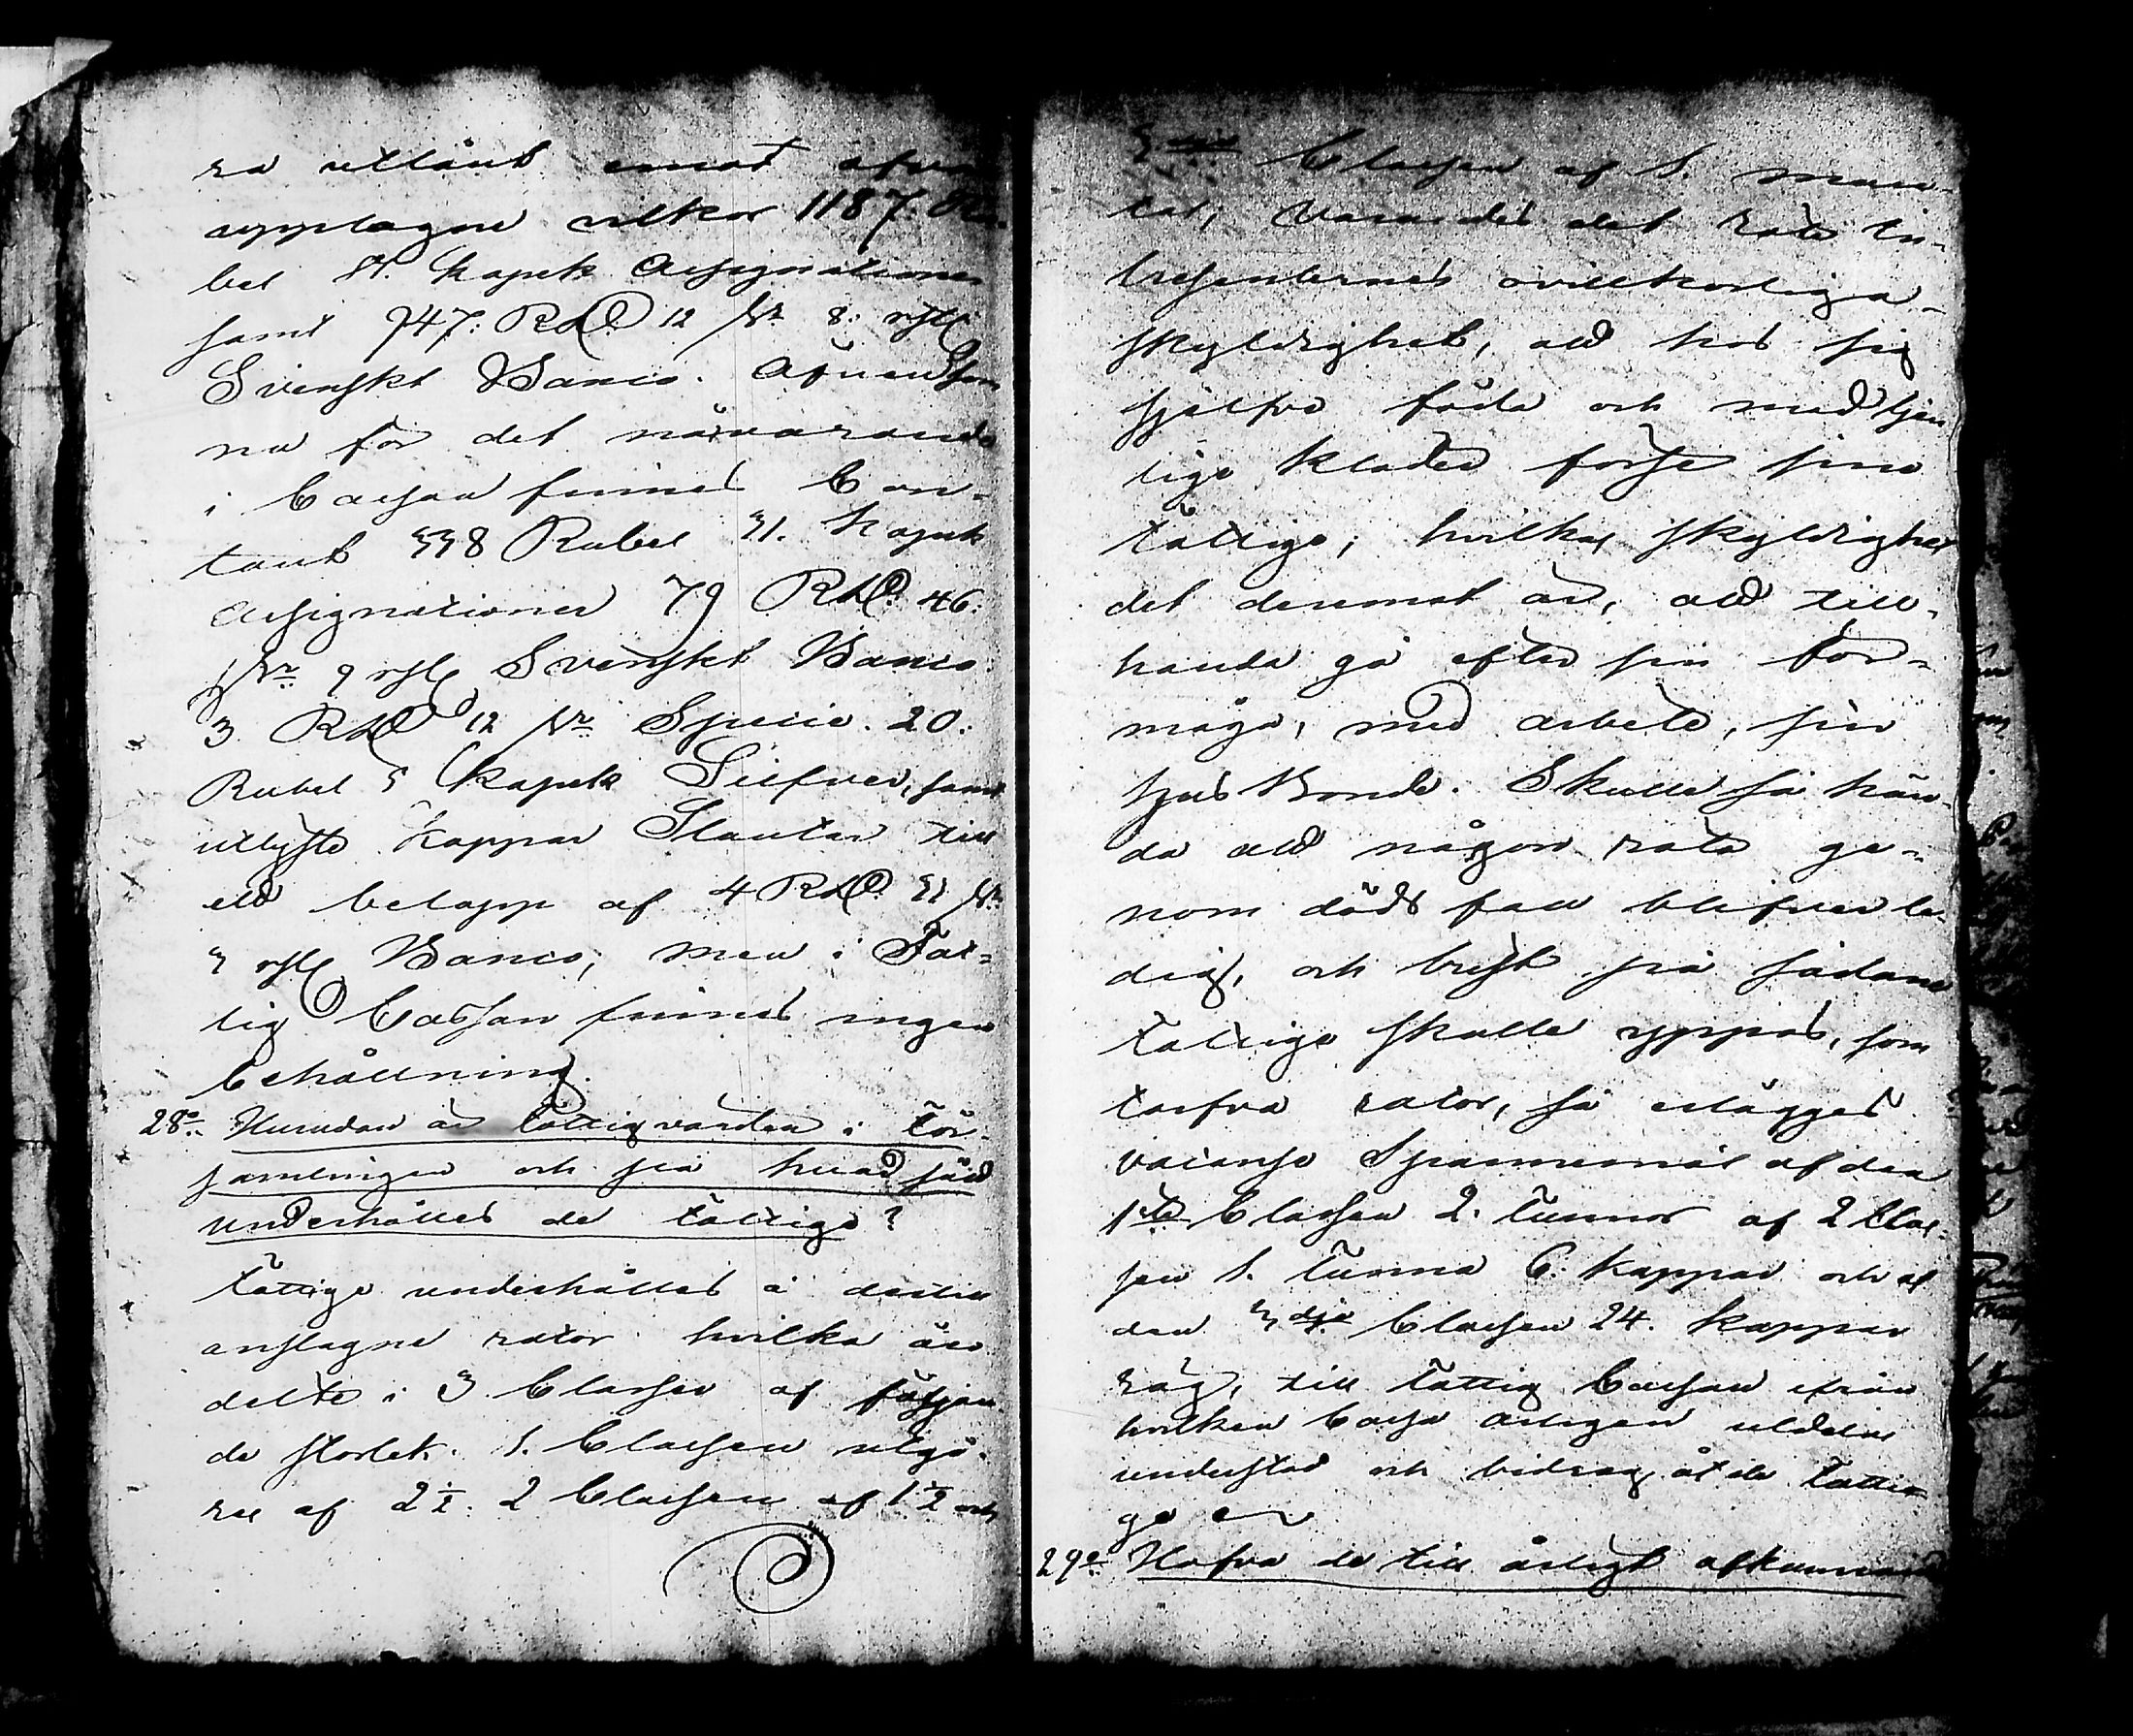 ra utlånt emot ofvan
upptagne vilkor 1187. Ru-
bel 81. kopek Assignationer
samt 747: RdD 12 sk 8: rst
Svenskt Banco. Äfven som
nu för det närvarande
i Cassan finnes Con-
tant 338 Rubel 31. kopek
Assignationer 79 RdD: 46:
sk: 9 rst Svenskt Banco
3 RdD 12 sk Specie. 20:
Rubel 5 kopek Silfver, samt
utlyste kappar Slantar till
ett belopp af 4 RdD: 31 sk
3 rst Banco; men i Fat-
tig Cassan finnes ingen
behållning.
28o. Hurudan är fattigvården i för-
samlingen och på hvad sätt
underhålles de fattige?
Fattige underhålles å dertill
anslagne rotar hvilka äro
delte i 3 Classer af följan
de storlek. 1. Classen utgö-
res af 2½. 2 Classen af 1½ och
3dje Classen af 1. man-
tal, varandes det rote in-
tressenternes ovillkorliga
skyldighet, att hos sig
sjelfve föda och med tjen
lige kläder förse sina
fattige; hvilkas skyldighet
det deremot är, att till-
handa gå efter sin för-
måga, med arbete, sin
hus Bonde. Skulle så hän-
da att någon rota ge-
nom döds fall blifver le-
dig, och brist på sådane
fattige skulle yppas, som
tarfva rotor, så erlägges
vacance Spannemål af den
1sta Classen 2. Tunnor af 2 Clas-
sen 1. Tunna 6. kappar och af
den 3dje Classen 24. kappar
råg, till fattig Cassan ifrån
hvilken Cassa årligen utdelas
understöd och bidrag åt de fatti-
ge
29o. Hafva de till årligt afkommande